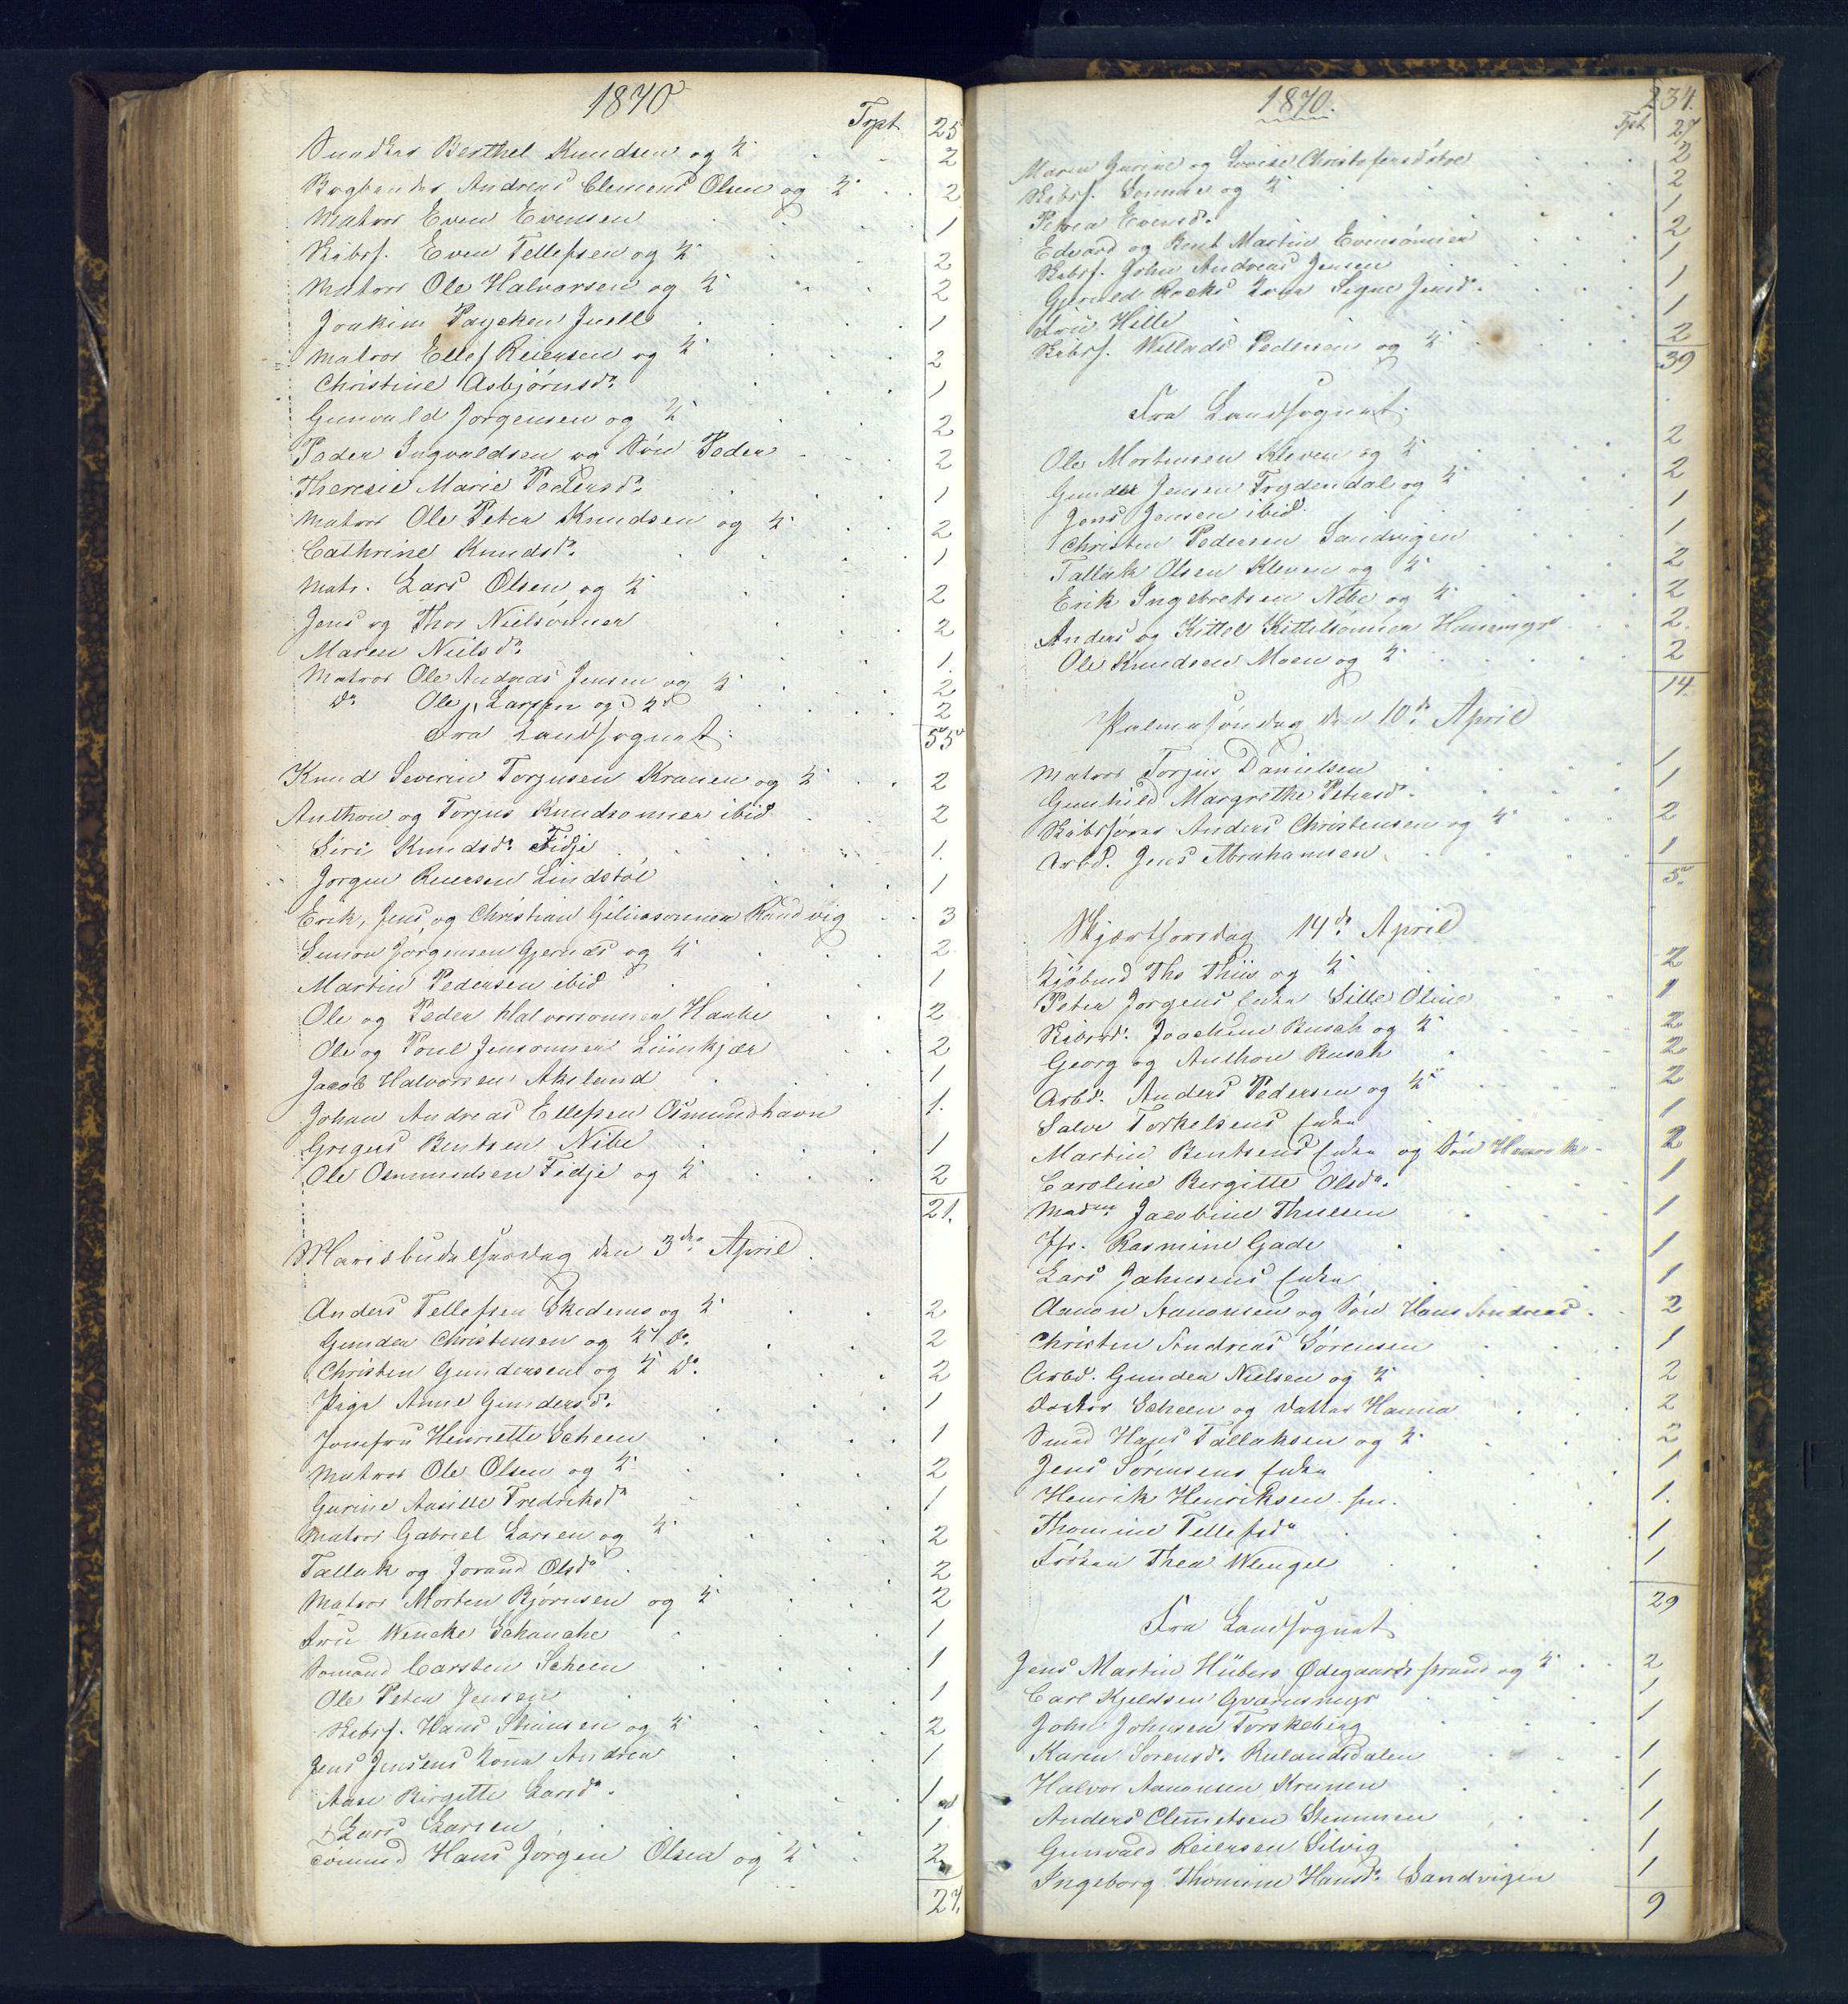 1870
Trpt. 25
Snedker Berthel Knudsen og H. 2
Bogbinder Andreas Clemens Olsen og H. 2
Matros Even Evensen 1
Skibsf. Even Tellefsen og H. 2
Matros Ole Halvorsen og H. 2
Joakim Paycken Juell 1
Matros Ellef Reiersen og H. 2
Christine Asbjørnsdr. 1
Gunvald Jørgensen og H. 2
Peder Ingvaldsen og Søn Peder 2
Theresie Marie Pedersdr. 1
Matros Ole Peter Knudsen og H. 2
Cathrine Knudsdr. 1
Matr. Lars Olsen og H. 2
Jens og Thor Nielsønner 2
Maren Nielsdr. 1.
Matros Ole Andreas Jensen og H. 2
Do Ole Larsen og H. 2
Fra Landsognet: 55
Knud Severin Torjusen Kranen og H. 2
Anthon og Torjus Knudsønner ibid 2
Siri Knudsdr. Fidje 1.
Jørgen Reiersen Lindstøl 1
Erik, Jens, og Christian Gelius­sønner Randvig 3
Simon Jørgensen Gjernes og H. 2
Martin Pedersen ibid 1
Ole og Peder Halvorsønner Haabe 2
Ole og Poul Jensønner Liimkjær 2
Jacob Halvorsen Akeland 1
Johan Andreas Ellefsen Osmundhavn 1.
Gregers Bentsen Nibe 1
Ole Osmundsen Fidje og H. 2
21.
Mariæbudelsesdag den 3die April.
Anders Tellefsen Skedemo og H. 2
Gunder Christensen og H. do. 2
Christen Gundersen og H. do. 2
Pige Anne Gundersdr. 1
Jomfru Henriette Scheen 1
Matros Ole Olsen og H. 2
Gurine Aasille Fredriksdr 1
Matros Gabriel Larsen og H. 2
Tallak og Jorand Olsdr 2
Matros Morten Bjørnsen og H. 2
Fru Wencke Schanche 1
Sømand Carsten Scheen 1
Ole Peter Jensen 1
Skibsf. Hans Stiansen og H. 2
Jens Jensens Kone Andrea 1
Aase Birgitte Larsdr. 1
Lars Larsen 1
Sømand Hans Jørgen Olsen og H. 2
27.
1870.
234.
Trpt. 27
Maren Gurine og Lovise Christofersdøtre 2
Skibsf. Sonne og H. 2
Petrea Evensdr. 1
Edvard og Bent Martin Evensønner 2
Skibsf. John Andreas Jensen 1
Kone Signe Jensdr. 1
Fru Hille 1
Skibsf. Willads Pedersen og H. 2
39
Fra Landsognet.
Ole Mortensen Kleven og H. 2
Gunder Jensen Frydendal og H. 2
Jens Jensen ibid. 1
Christen Pedersen Sandvigen 1
Tallak Olsen Kleven og H. 2
Erik Ingebretsen Nibe og H. 2
Anders og Kittel Kittelsønner Hammyr 2.
Ole Knudsen Moen og H. 2
14.
Palmesøndag den 10de April
Matros Torjus Danielsen 1
Gunhild Margrethe Petersdr. 1
Skibsfører Anders Christensen og H. 2
Arbd. Jens Abrahamsen 1
5.
Skjærthorsdag 14de April
Kjøbmd Ths Thiis og H. 2
Peter Jørgens Enke Sille Oline 1
Skibsrd. Joachim Busch og H. 2
Georg og Anthon Busch 2
Arbd. Anders Pedersen og H. 2
Salve Torkelsens Enke 1
Martin Bentsens Enke og Søn Henrik 2
Caroline Bergitte Olsdr. 1
Madm Jacobine Thuesen 1
Jfr. Rasmine Gade 1
Lars Jahnsens Enke 1
Aanon Aanonsen og Søn Hans Andreas 2
Christen Andreas Sørensen 1
Arbd. Gunder Nielsen og H. 2
Doctor Scheen og Datter Hanna 2
Smed Hans Tallaksen og H. 2
Jens Sørensens Enke 1
Henrik Henriksen sen. 1.
Thomine Tellefsdr 1
Frøken Thea Wengel 1
29
Fra Landsognet
Jens Martin Hübert Ødegaards­strand og H. 2
Carl Kjeldsen Gværnsmyr 1
John Johnsen Torskeberg 1
Karen Sørensdr. Rulandsdalen 1
Halvor Aanonsen Krunen 1
Anders Clemetsen Stemmen 1
Gunvald Reiersen Silvig 1
Ingeborg Thomine Hansdr. Sandvigen 1
9